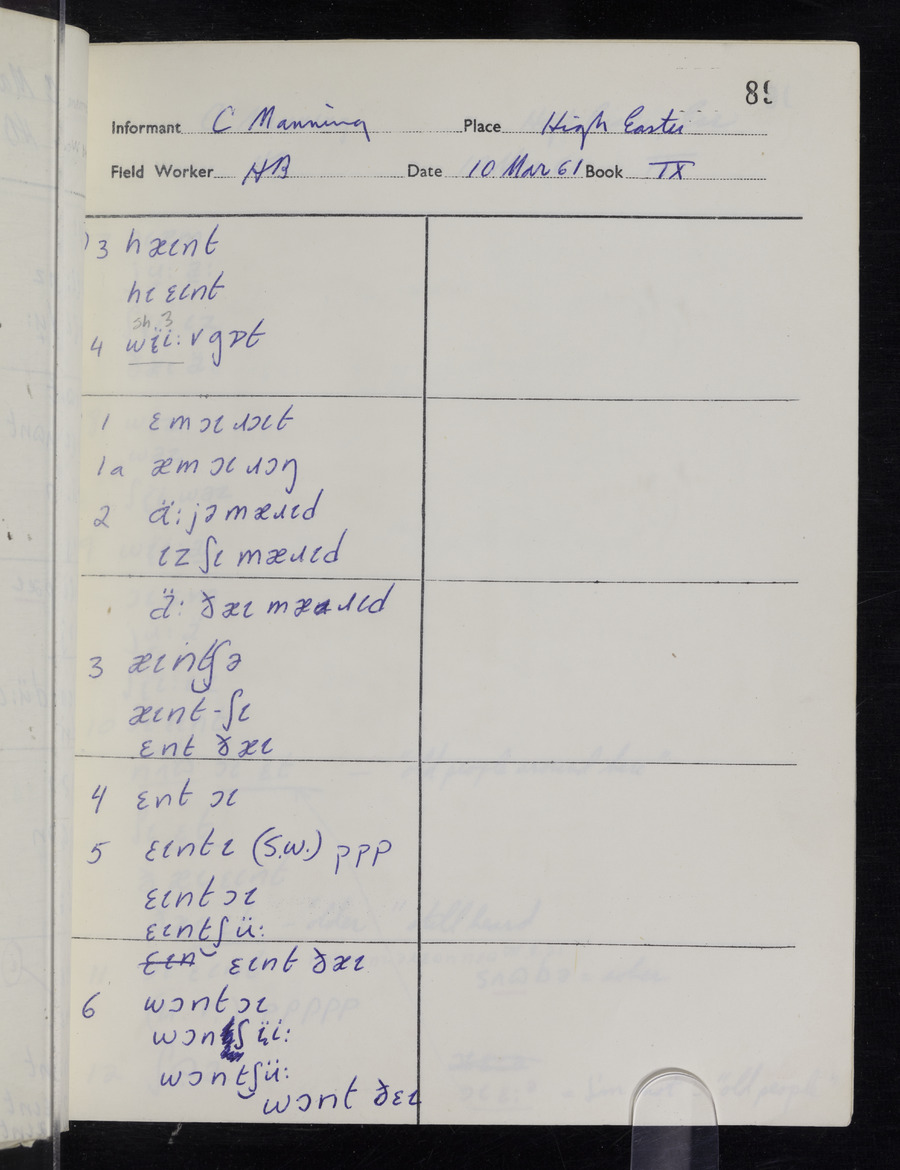 89
Informant C Manning Place High Easter
Field Worker HB Date 10 Mar 61 Book IX
3 hæɩnt
hɩ ɛɩnt
sh. 3
4 wɩ̈i: vgɒt
1 ɛm ɔɩ ɹɔɩt
1a æm ɔɩ ɹɔŋ
2 ä: jə mæɹɩd
ɩz ʃɩ mæɹɩd
ä: ðæɩ mæɹɩd
3 æɩntʃə
æɩnt-ʃɩ
ɛnt ðæɩ
4 ɛnt ɔɩ
5 ɛɩntɩ (S.W.) ppp
ɛɩnt ɔɩ
ɛɩntʃü:
ɛɩnt ðæɩ
6 wɔnt ɔɩ
wɔnʃɩ̈i:
wɔntʃü:
wɔnt ðɛɩ